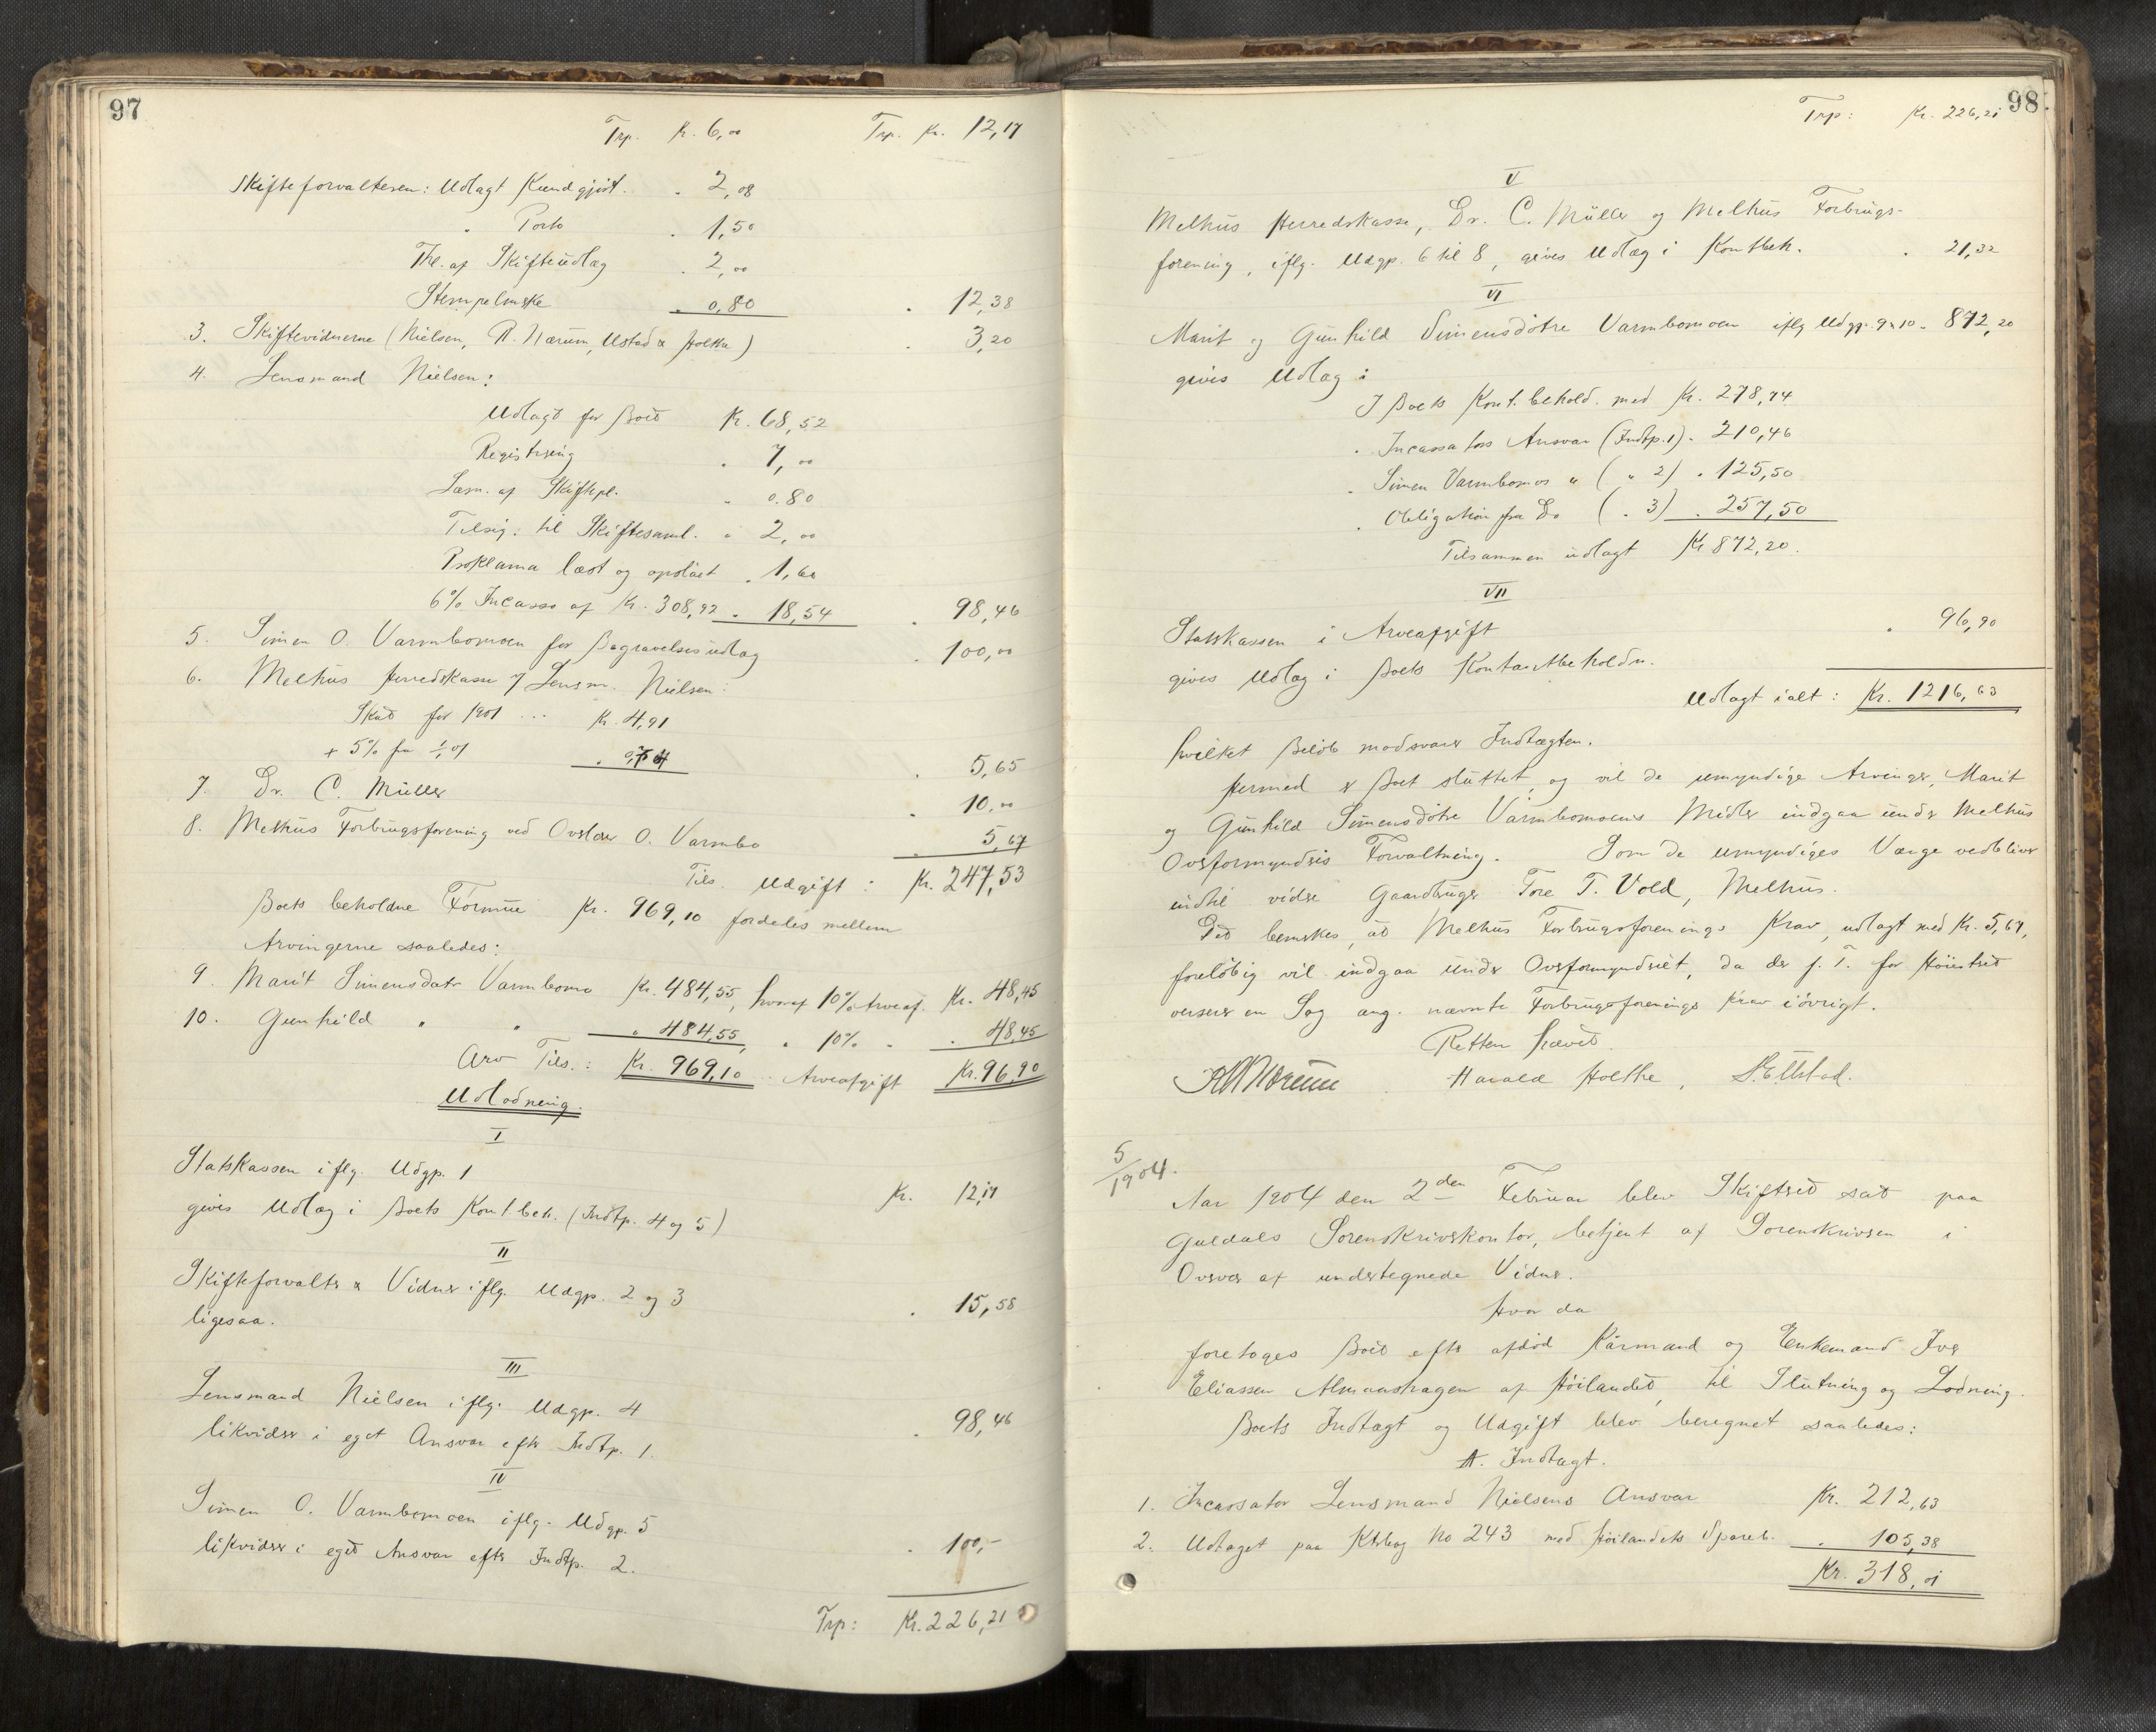 97
Trp. Kr. 6,00 Trp. Kr. 12,17
Skifteforvalteren: Udlagt Kundgjört. " 2,08
" Porto " 1,50
Thl. af Skifteudlæg " 2,00
Stempelmrke " 0,80 " 12,38
3. Skiftevidnerne (Nielsen, R. Nærum, Ustad & Holthe) " 3,20
4. Lensmand Nielsen:
Udlagt for Boet Kr. 68,52
Registrering " 7,00
Læsn. af Skiftepl. " 0.80
Tilsig. til Skiftesaml. " 2,00
Proklama læst og opslaaet " 1,60
6% Incasso af Kr. 308,92 " 18,54 " 98,46
5. Simen O. Varmbomoen for Begravelsesudlæg " 100,00
6. Melhus Herredskasse v/ Lensm. Nielsen:
Skat for 1901 ... Kr. 4,91
+ 5% fra 1/1 01 " 0,74 " 5,65
7. Dr. C. Müller " 10.00
8. Melhus Forbrugsforening ved Ovslær O. Varmbo " 5,67
Tils. Udgift: Kr. 247,53
Boets beholdne Formue Kr. 969,10 fordeles mellem
Arvingerne saaledes:
9. Marit Simensdatr Varmbomo Kr. 484,55, hvoraf 10% Arveaf. Kr. 48,45
10. Gunhild " " " 484,55, " 10% " " 48,45
Arv Tils.: Kr. 969,10 .. Arveafgift Kr. 96,90
Udlodning.
I
Statskassen iflg. Udgp. 1
gives Udlæg i Boets Kont. beh. (Indtp. 4 og 5) Kr. 12,17
II
Skifteforvaltr & Vidner iflg. Udgp. 2 og 3
ligesaa. " 15,58
III
Lensmand Nielsen iflg. Udgp. 4
likvidrer i eget Ansvar eftr Indtp. 1. " 98,46
IV
Simen O. Varmbomoen iflg. Udgp. 5
likvidrer i eget Ansvar eftr Indtp. 2. " 100,-
Trp: Kr. 226,21
98.
Trp: Kr. 226,21
V
Melhus Herredskasse, Dr. C. Müller og Melhus Forbrugs-
forening, iflg. Udgp. 6 til 8, gives Udlæg i Kontbeh. " 21,32
VI
Marit og Gunhild Simensdötre Varmbomoen iflg Udgp. 9 & 10 " 872,20
gives Udlæg:
I Boets Kont. behold. med Kr. 278,74
" Incassators Ansvar (Indtp. 1) " 210,46
" Simen Varmbomos " ( " 2) " 125,50
" Obligation fra Do ( " 3) " 257,50
Tilsammen udlagt Kr 872,20.
VII
Statskassen i Arveafgift " 96,90
gives Udlæg i Boets Kontantbeholdn.
Udlagt ialt: Kr. 1216,63
hvilket Belöb modsvarer Indtægten.
Hermed er Boet sluttet, og vil de umyndige Arvinger, Marit
og Gunhild Simensdötre Varmbomoens Midler indgaa under Melhus
Ovrformynderis Forvaltning. Som de umyndiges Værge vedbliver
indtil videre Gaardbruger Tore T. Vold, Melhus.
Det bemrkes, at Melhus Forbrugsforenings Krav, udlagt med Kr. 5,67,
foreløbig vil indgaa under Ovrformynderiet, da der f. T. for Höiestret
verserer en Sag ang. nævnte Forbrugsforenings Krav iövrigt.
Retten hævet.
R. Nærum. Harald Holthe, S. E. Ustad.
5/1904.
Aar 1904 den 2den Februar blev Skifteret sat paa
Guldals Sorenskriverkontor, betjent af Sorenskriveren i
Overvær af undertegnede Vidner.
Hvor da
foretoges Boet eftr afdöd Kårmand og Enkemand Iver
Eliassen Almaashagen af Höilandet, til Slutning og Lodning.
Boets Indtægt og Udgift blev beregnet saaledes:
A. Indtægt.
1. Incassator Lensmand Nielsens Ansvar Kr. 212,63
2. Udtaget paa Ktrbog No 243 med Höilandets Spareb. " 105,38
Kr. 318,01